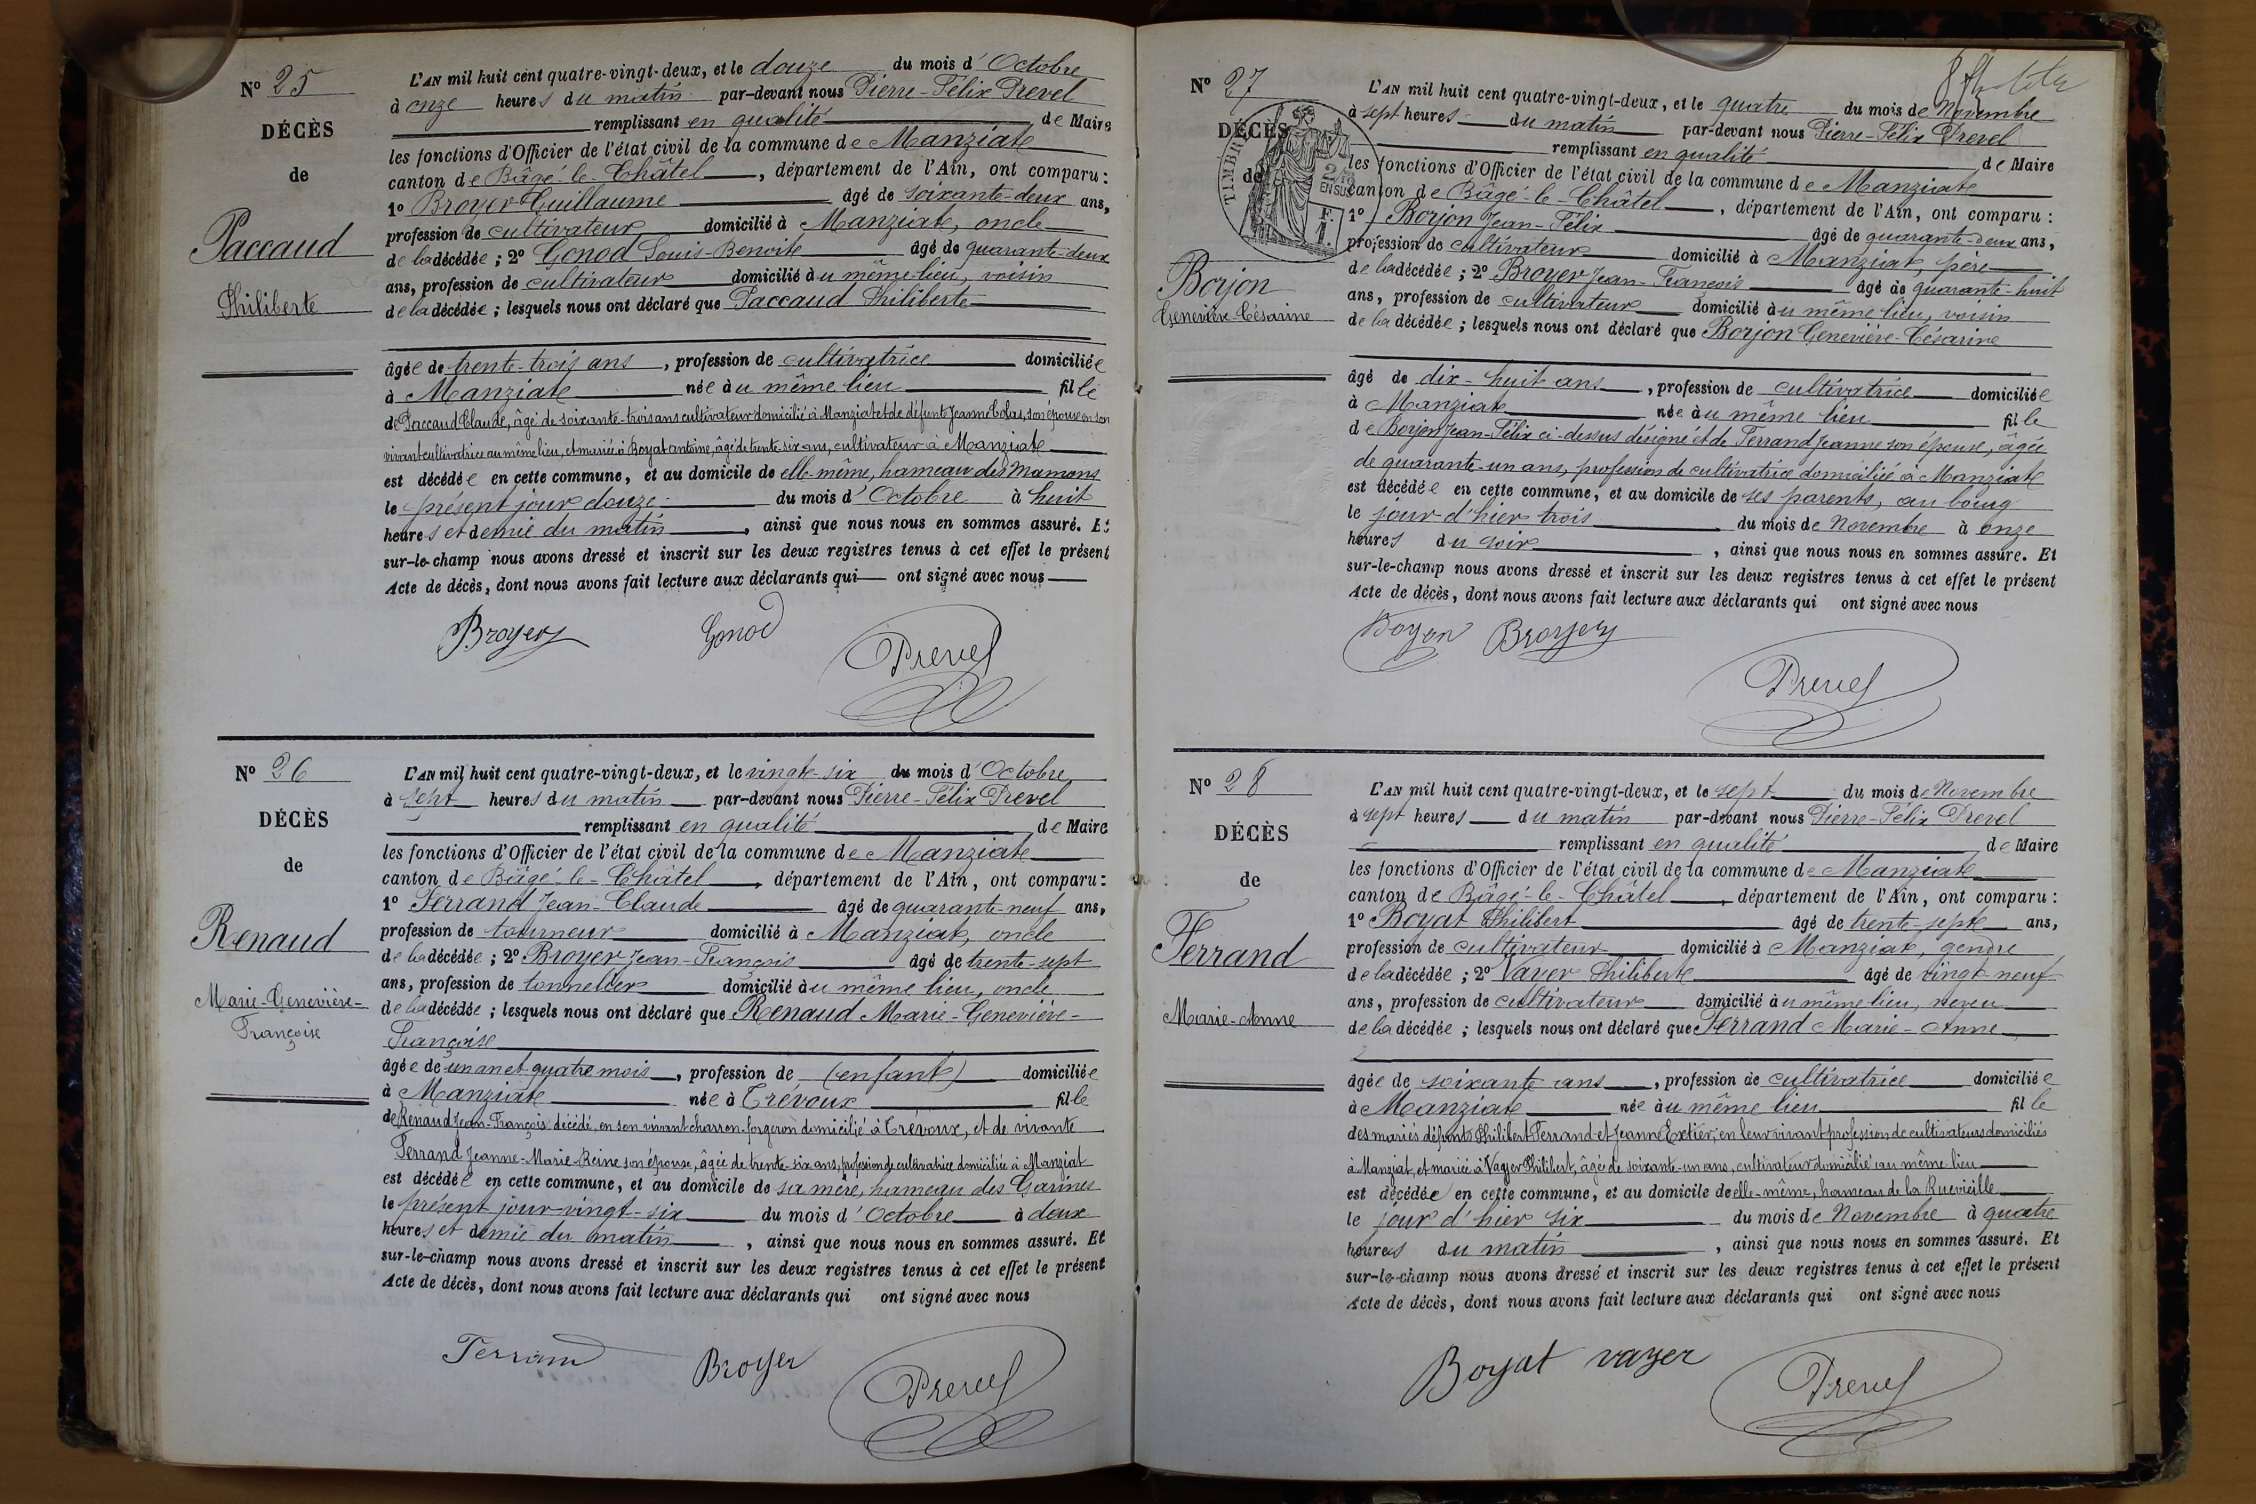 N° 25
DÉCÈS
de
Paccaud
Philiberte
L'AN mil huit cent quatre-vingt-deux, et le douze du mois d'Octobre
à onze heures du matin par-devant nous Pierre-Félix Prevel
remplissant en qualité de Maire
les fonctions d'Officier de l'état civil de la commune de Manziat
canton de Bâgé-le-Châtel, département de l'Ain, ont comparu :
1° Broyer Guillaume âgé de soixante-deux ans,
profession de cultivateur domicilié à Manziat, oncle
de la décédée ; 2° Gonod Louis-Benoit âgé de quarante-deux
ans, profession de cultivateur domicilié au même lieu, voisin
de la décédée ; lesquels nous ont déclaré que Paccaud Philiberte
âgée de trente-trois ans, profession de cultivatrice domiciliée
à Manziat née au même lieu fille
de Paccaud Claude, âgé de soixante-trois ans cultivateur domicilié à Manziat et de défunt Jeanne Colas, son épouse en son
vivant cultivatrice au même lieu, et mariée à Boyat antoine, âgé de trente-six ans, cultivateur à Manziat
est décédée en cette commune, et au domicile de elle-même, hameau des Mamans
le présent jour douze du mois d'Octobre à huit
heures et demie du matin, ainsi que nous nous en sommes assuré. Et
sur-le-champ nous avons dressé et inscrit sur les deux registres tenus à cet effet le présent
Acte de décès, dont nous avons fait lecture aux déclarants qui ont signé avec nous
Broyer Gonod Prevel
N° 26
DÉCÈS
de
Renaud
Marie-Geneviève-
Françoise
L'AN mil huit cent quatre-vingt-deux, et le vingt-six du mois d'Octobre
à sept heures du matin par-devant nous Pierre-Félix Prevel
remplissant en qualité de Maire
les fonctions d'Officier de l'état civil de la commune de Manziat
canton de Bâgé-le-Châtel, département de l'Ain, ont comparu :
1° Ferrand Jean-Claude âgé de quarante-neuf ans,
profession de tourneur domicilié à Manziat, oncle
de la décédée ; 2° Broyer Jean-François âgé de trente-sept
ans, profession de tonnelier domicilié au même lieu, oncle
de la décédée ; lesquels nous ont déclaré que Renaud Marie-Geneviève-
Françoise
âgée de un an et quatre mois, profession de (enfant) domiciliée
à Manziat née à Trévoux fille
de Renaud Jean-François décédé, en son vivant charron-forgeron domicilié à Trévoux, et de vivante
Ferrand Jeanne-Marie-Reine son épouse, âgée de trente-six ans, profession de cultivatrice domiciliée à Manziat
est décédée en cette commune, et au domicile de sa mère, hameau des Carines
le présent jour vingt-six du mois d'Octobre à deux
heures et demie du matin, ainsi que nous nous en sommes assuré. Et
sur-le-champ nous avons dressé et inscrit sur les deux registres tenus à cet effet le présent
Acte de décès, dont nous avons fait lecture aux déclarants qui ont signé avec nous
Ferrand Broyer Prevel
N° 27
DÉCÈS
de
TIMBRE
2/10
EN SUS
Borjon
Geneviève-Césarine
L'AN mil huit cent quatre-vingt-deux, et le quatre du mois de Novembre
à sept heures du matin par-devant nous Pierre-Félix Prevel
remplissant en qualité de Maire
les fonctions d'Officier de l'état civil de la commune de Manziat
canton de Bâgé-le-Châtel, département de l'Ain, ont comparu :
1° Borjon Jean-Félix âgé de quarante-deux ans,
profession de cultivateur domicilié à Manziat, père
de la décédée ; 2° Broyer Jean-François âgé de quarante-huit
ans, profession de cultivateur domicilié au même lieu, voisin
de la décédée ; lesquels nous ont déclaré que Borjon Geneviève-Césarine
âgé de dix-huit ans, profession de cultivatrice domiciliée
à Manziat née au même lieu fille
de Borjon Jean-Félix ci-dessus désigné et de Ferrand Jeanne son épouse, âgée
de quarante-un ans, profession de cultivatrice domiciliée à Manziat
est décédée en cette commune, et au domicile de ses parents, au bourg
le jour d'hier trois du mois de Novembre à onze
heures du soir, ainsi que nous nous en sommes assuré. Et
sur-le-champ nous avons dressé et inscrit sur les deux registres tenus à cet effet le présent
Acte de décès, dont nous avons fait lecture aux déclarants qui ont signé avec nous
Borjon Broyer Prevel
N° 28
DÉCÈS
de
Ferrand
Marie-Anne
L'AN mil huit cent quatre-vingt-deux, et le sept du mois de Novembre
à sept heures du matin par-devant nous Pierre-Félix Prevel
remplissant en qualité de Maire
les fonctions d'Officier de l'état civil de la commune de Manziat
canton de Bâgé-le-Châtel, département de l'Ain, ont comparu :
1° Boyat Philibert âgé de trente-sept ans,
profession de cultivateur domicilié à Manziat, gendre
de la décédée ; 2° Vayer Philibert âgé de vingt-neuf
ans, profession de cultivateur domicilié au même lieu, neveu
de la décédée ; lesquels nous ont déclaré que Ferrand Marie-Anne
âgée de soixante ans, profession de cultivatrice domiciliée
à Manziat née au même lieu fille
des mariés défunts Philibert Ferrand et Jeanne Extier, en leur vivant profession de cultivateurs domiciliés
à Manziat, et mariée à Vayer Philibert, âgé de soixante-un ans, cultivateur domicilié au même lieu
est décédée en cette commune, et au domicile de elle-même, hameau de la Ruevieille
le jour d'hier six du mois de Novembre à quatre
heures du matin, ainsi que nous nous en sommes assuré. Et
sur-le-champ nous avons dressé et inscrit sur les deux registres tenus à cet effet le présent
Acte de décès, dont nous avons fait lecture aux déclarants qui ont signé avec nous
Boyat vayer Prevel